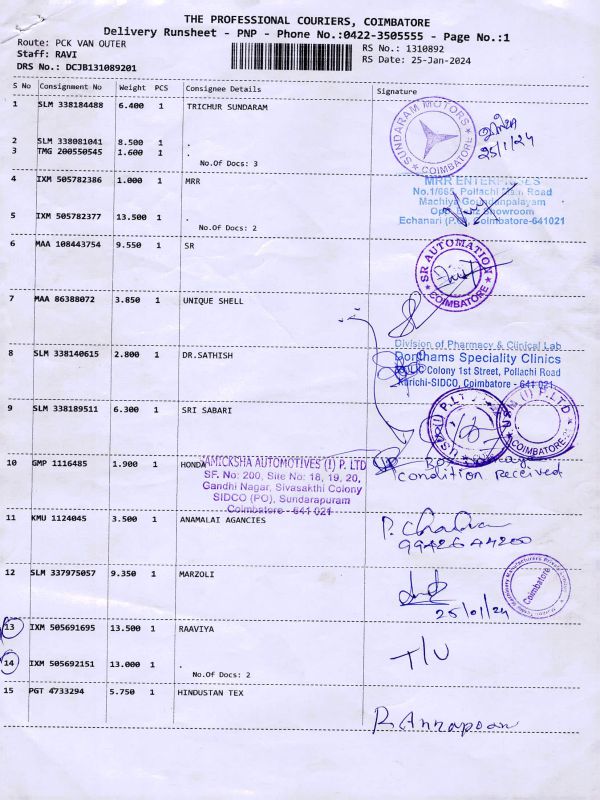 THE PROFESSIONAL COURIERS, COIMBATORE
Delivery Runsheet - PNP - Phone No.:0422-3505555 - Page No.:1
Route: PCK VAN OUTER
RS No.: 1310892
Staff: RAVI
RS Date: 25-Jan-2024
DRS No.: DCJB131089201
S No Consignment No Weight PCS Consignee Details Signature
1 SLM 338184488 6.400 1 TRICHUR SUNDARAM
SUNDARAM MOTORS
COIMBATORE
25/1/24
2 SLM 338081041 8.500 1 .
3 TMG 200550545 1.600 1 .
No.Of Docs: 3
4 IXM 505782386 1.000 1 MRR
MRR ENTERPRISES
No.1/665, Pollachi Main Road
Machiya Goundanpalayam
Showroom
Echanari (P.O), Coimbatore-641021
5 IXM 505782377 13.500 1 .
No.Of Docs: 2
6 MAA 108443754 9.550 1 SR
SR AUTOMATION
COIMBATORE
7 MAA 86388072 3.850 1 UNIQUE SHELL
Division of Pharmacy & Clinical Lab
Dorthams Speciality Clinics
Colony 1st Street, Pollachi Road
Kurichi-SIDCO, Coimbatore - 641 021
8 SLM 338140615 2.800 1 DR.SATHISH
9 SLM 338189511 6.300 1 SRI SABARI
P.LTD
USM (I) P.LTD
COIMBATORE
10 GMP 1116485 1.900 1 HONDA
SAMICKSHA AUTOMOTIVES (I) P. LTD
SF. No: 200, Site No: 18, 19, 20,
Gandhi Nagar, Sivasakthi Colony
SIDCO (PO), Sundarapuram
Coimbatore - 641 021
Box
condition received
11 KMU 1124045 3.500 1 ANAMALAI AGANCIES
12 SLM 337975057 9.350 1 MARZOLI
Coimbatore
25/01/24
13 IXM 505691695 13.500 1 RAAVIYA
T/U
14 IXM 505692151 13.000 1 .
No.Of Docs: 2
15 PGT 4733294 5.750 1 HINDUSTAN TEX